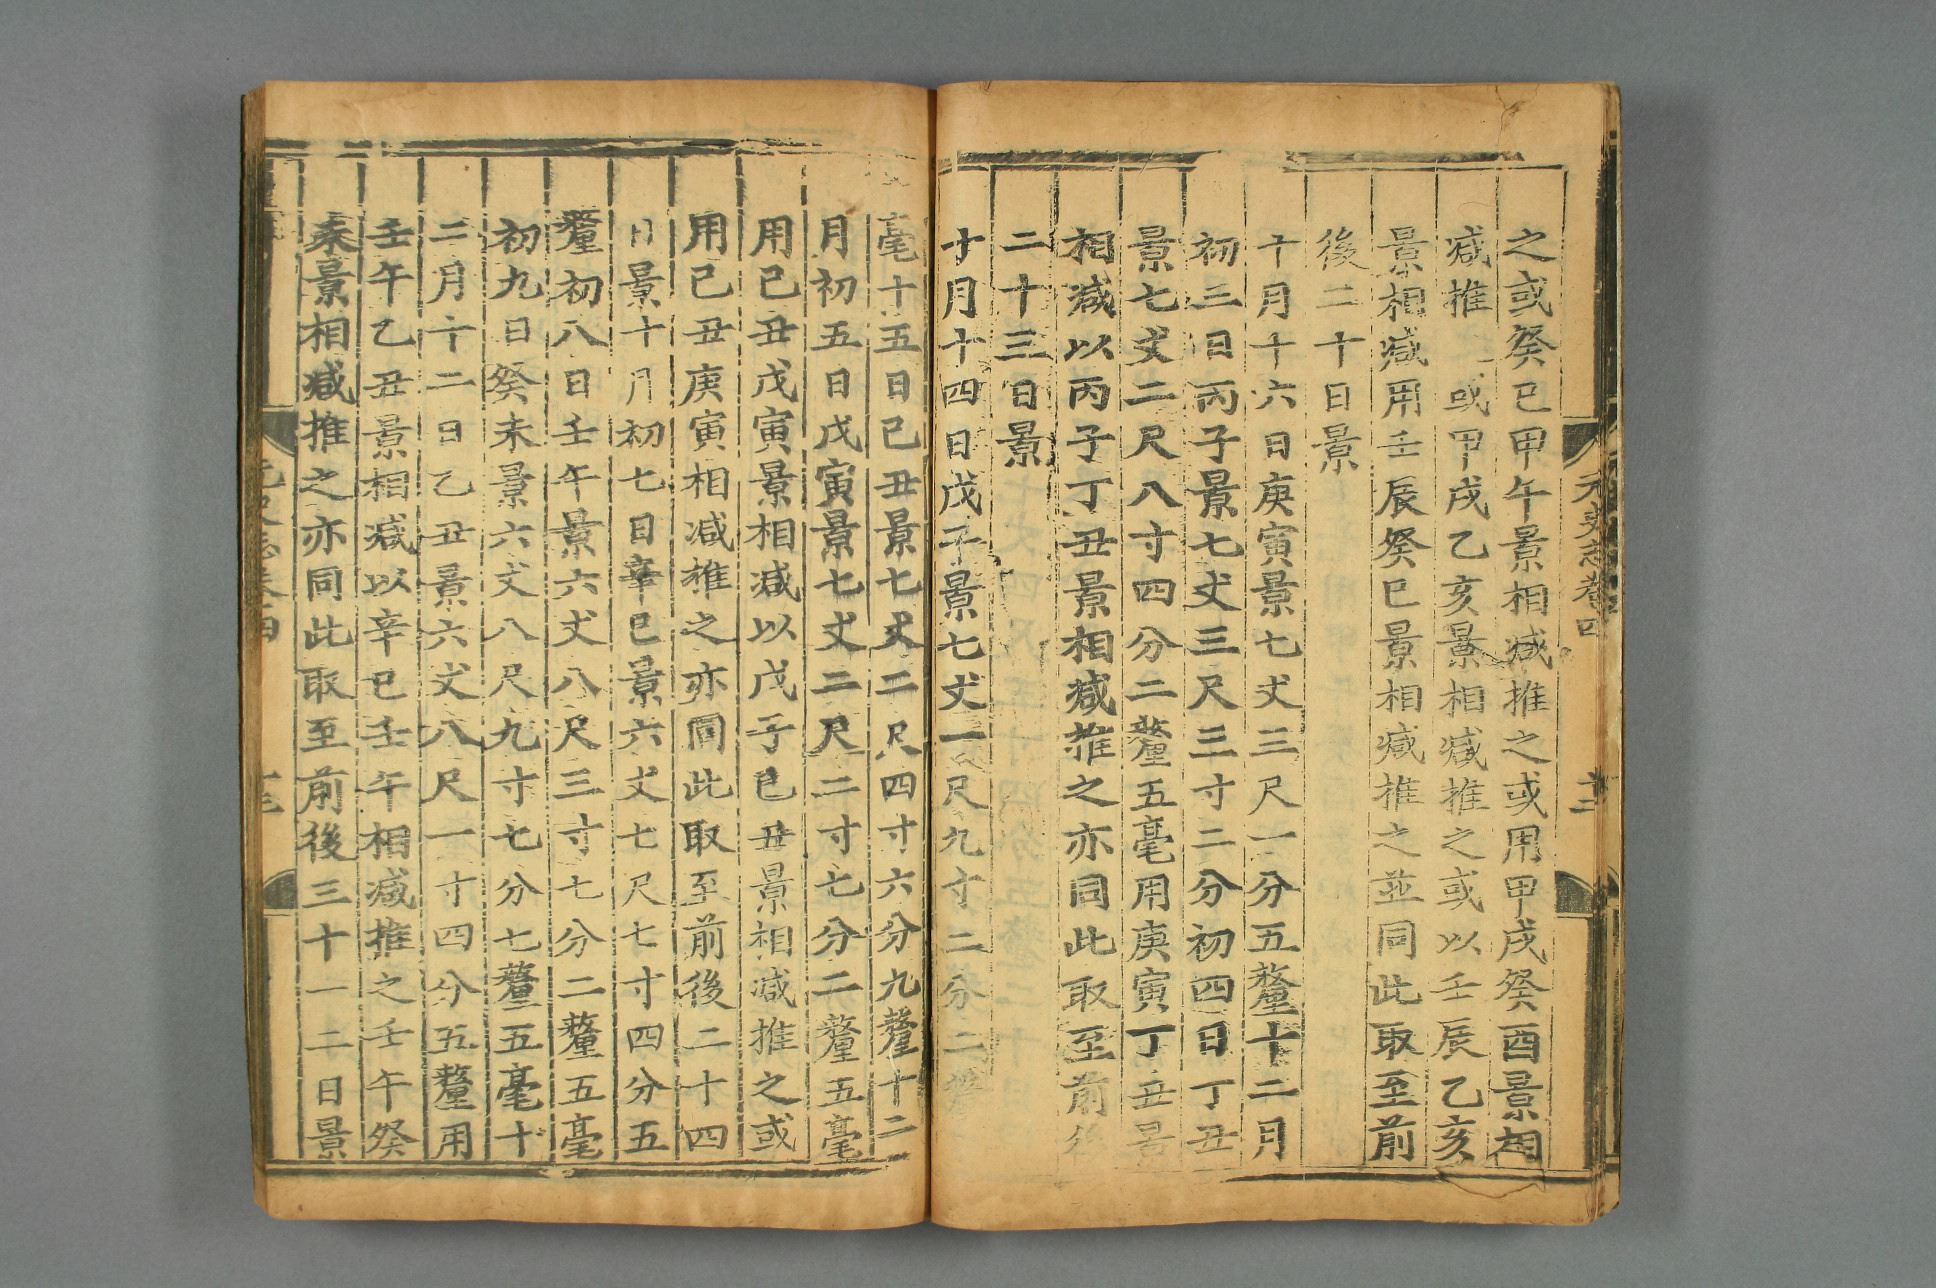 元史志卷四
十二
之或癸巳甲午景相减推之或用甲戌癸酉景相
减推之或甲戌乙亥景相减推之或以壬辰乙亥
景相减用壬辰癸巳景相减推之並同此取至前
後二十日景
十月十六日庚寅景七丈三尺一分五釐十二月
初三日丙子景七丈三尺三寸二分初四日丁丑
景七丈二尺八寸四分二釐五毫用庚寅丁丑景
相减以丙子丁丑景相减推之亦同此取至前後
二十三日景
十月十四日戊子景七丈一尺九寸二分二釐
毫十五日己丑景七丈二尺四寸六分九釐十二
月初五日戊寅景七丈二尺二寸七分二釐五毫
用己丑戊寅景相减以戊子己丑景相减推之或
用己丑庚寅相减推之亦同此取至前後二十四
日景十月初七日辛巳景六丈七尺七寸四分五
釐初八日壬午景六丈八尺三寸七分二釐五毫
初九日癸未景六丈八尺九寸七分七釐五毫十
二月十二日乙丑景六丈八尺一寸四分五釐用
壬午乙丑景相减以辛巳壬午相减推之壬午癸
未景相减推之亦同此取至前後三十一二日景
元史志卷四
十三